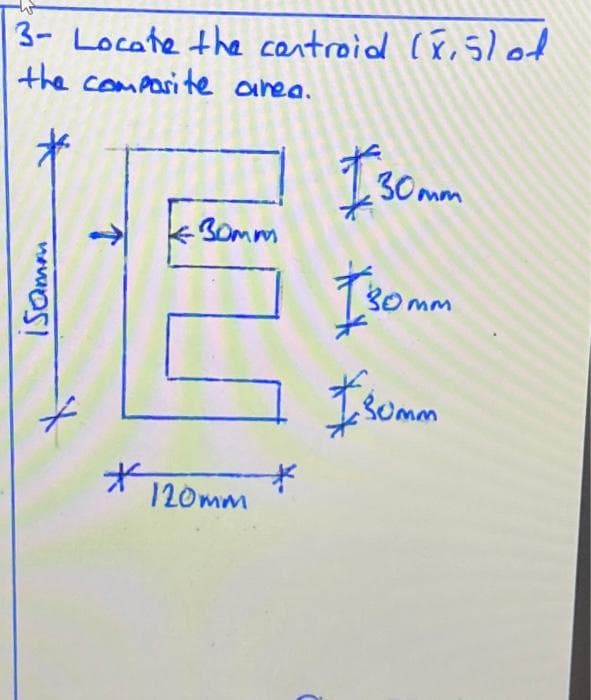 3- Locate the centroid (x̄, ȳ) of
the composite area.
30mm
30mm
150mm
30mm
30mm
120mm